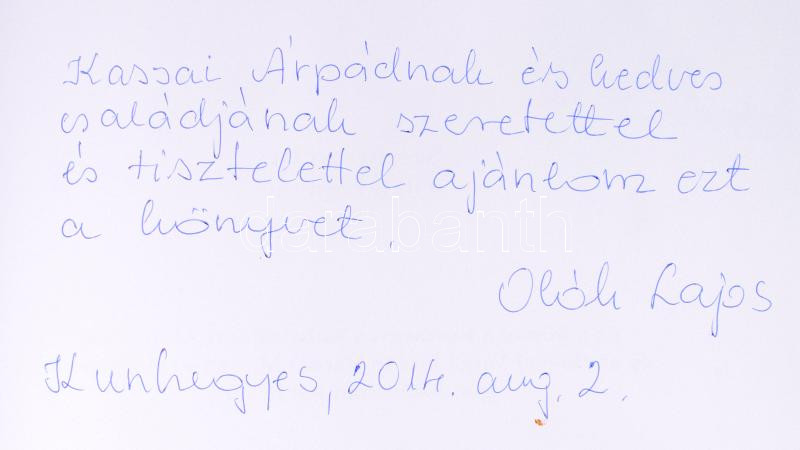 Kassai Árpádnak és kedves
családjának szeretettel
és tisztelettel ajánlom ezt
a könyvet.
darabanth
Okók Lajos
Kunhegyes, 2014. aug. 2.